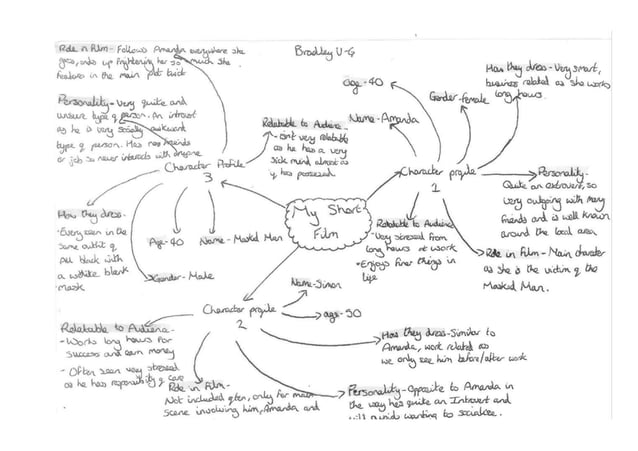 Bradley U-G
Role in Film - Follows Amanda everywhere she
goes, ends up frightening her so much she
features in the main plot twist
Personality - Very quite and
unsure type of person. An introvt
as he is very socially awkward
type of person. Has no friends
or job so never interacts with anyone
Character Profile
3
Relatable to Audience -
- Isn't very relatable
as he has a very
sick mind almost as
if has possessed.
How they dress -
- Every seen in the
same outfit of
all black with
a white blank
mask
Age - 40
Name - Masked Man
Gender - Male
My Short
Film
age - 40
Name - Amanda
Gender - female
How they dress - Very smart,
business related as she works
long hours.
Character profile
1
Personality -
Quite an extrovert, so
very outgoing with many
friends and is well known
around the local area
Relatable to Audience
- Very stressed from
long hours at work
• Enjoys finer things in
life
Role in Film - Main charater
as she is the victim of the
Masked Man.
Character profile
2
Name - Simon
age - 50
How they dress - Similar to
Amanda, work related as
we only see him before/after work
Personality - Opposite to Amanda in
the way hes quite an Introvert and
wanting to socialise.
Role in Film -
Not included often, only for main
scene involving him, Amanda and
Relatable to Audience -
- Works long hours for
success and earn money
- Often seen very stressed
as he has reponsibility of care